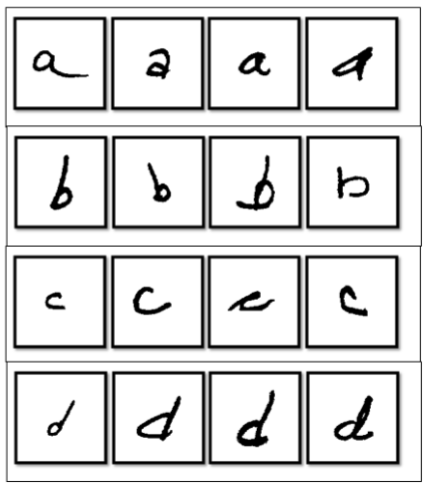 a a a a
b b b b
c c c c
d d d d